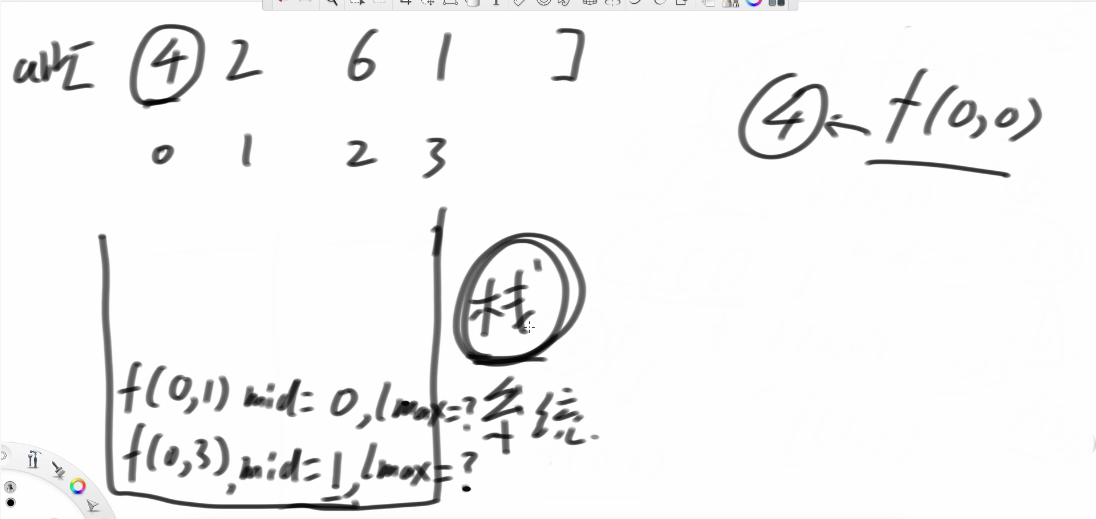 arr[ 4 2 6 1 ]
0 1 2 3
4 ← f(0,0)
栈
系统
f(0,1) mid=0, lmax=?
f(0,3), mid=1, lmax=?